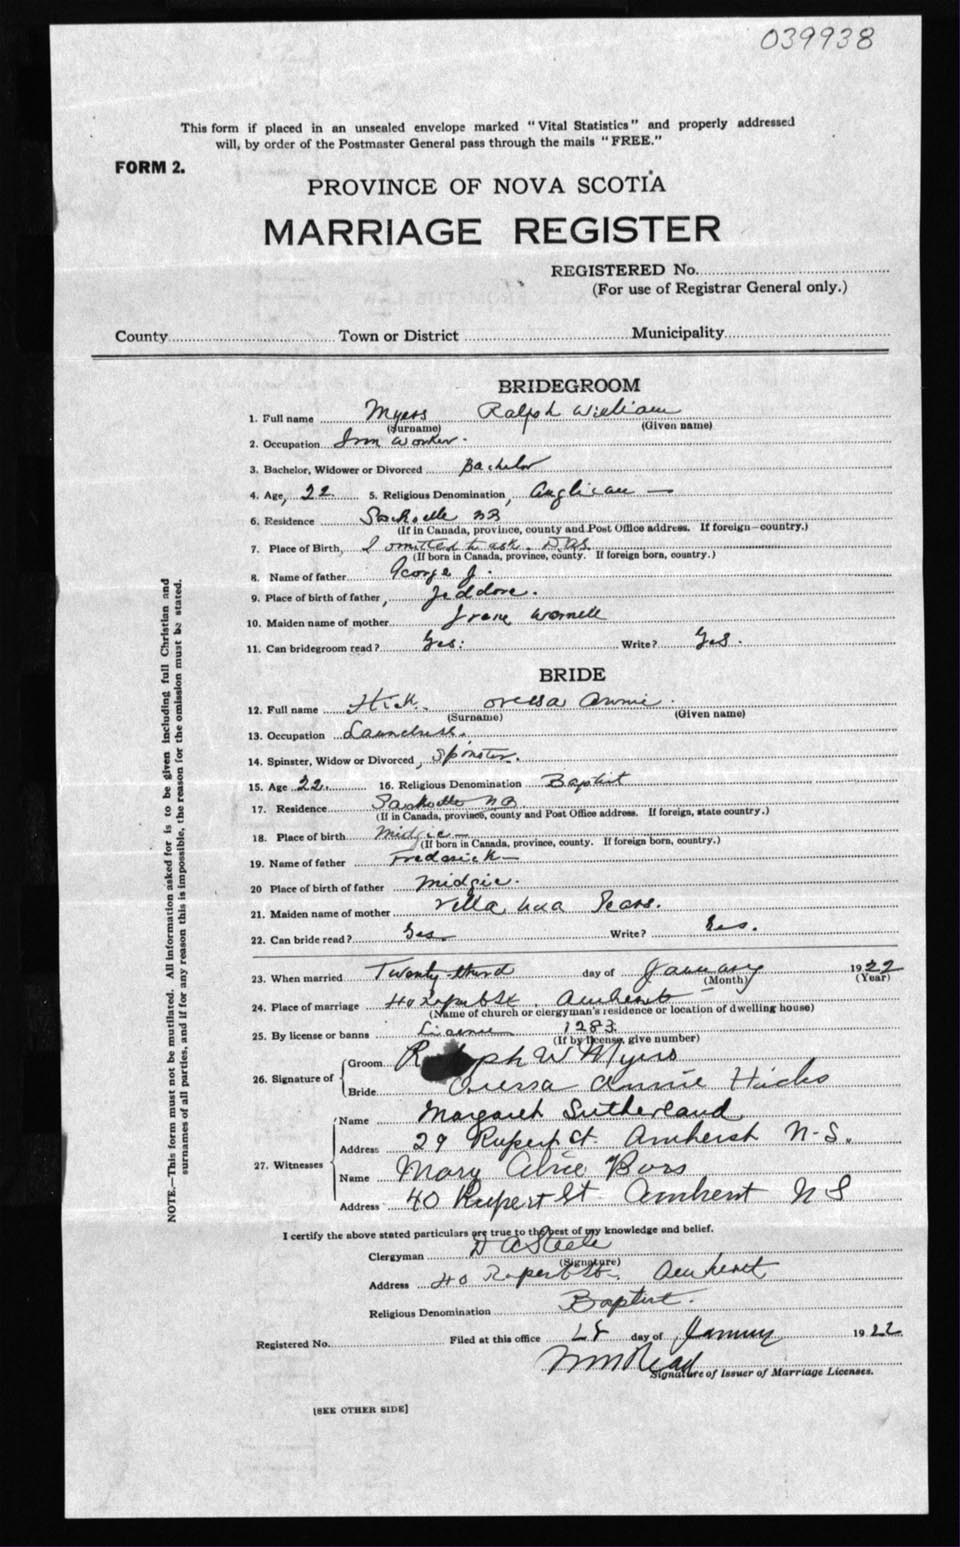 039938
This form if placed in an unsealed envelope marked "Vital Statistics" and properly addressed
will, by order of the Postmaster General pass through the mails "FREE."
FORM 2.
PROVINCE OF NOVA SCOTIA
MARRIAGE REGISTER
REGISTERED No.
(For use of Registrar General only.)
County Town or District Municipality
BRIDEGROOM
1. Full name Myers Ralph William
(Surname) (Given name)
2. Occupation Iron Worker.
3. Bachelor, Widower or Divorced Bachelor
4. Age, 22 5. Religious Denomination, Anglican
6. Residence Sackville NB
(If in Canada, province, county and Post Office address. If foreign—country.)
7. Place of Birth, I omitted to ask. DAS
(If born in Canada, province, county. If foreign born, country.)
8. Name of father George J.
9. Place of birth of father, Jeddore.
10. Maiden name of mother
11. Can bridegroom read? Yes. Write? Yes.
BRIDE
12. Full name Hick. Oressa Annie.
(Surname) (Given name)
13. Occupation Laundress.
14. Spinster, Widow or Divorced, Spinster.
15. Age 22. 16. Religious Denomination Baptist
17. Residence Sackville NB
(If in Canada, province, county and Post Office address. If foreign, state country.)
18. Place of birth Midgic
(If born in Canada, province, county. If foreign born, country.)
19. Name of father Frederick
20 Place of birth of father Midgic.
21. Maiden name of mother
22. Can bride read? Yes Write? Yes.
23. When married Twenty-third day of January 1922
(Month) (Year)
24. Place of marriage 40 Rupert St. Amherst
(Name of church or clergyman's residence or location of dwelling house)
25. By license or banns License 1283
(If by license, give number)
26. Signature of Groom Ralph W Myers
Bride Oressa Annie Hicks
27. Witnesses Name Margaret Sutherland
Address 29 Rupert Ct. Amherst N-S.
Name Mary Alice
Address 40 Rupert St Amherst N S
I certify the above stated particulars are true to the best of my knowledge and belief.
Clergyman D A Steele
(Signature)
Address 40 Rupert St. Amherst
Religious Denomination Baptist.
Registered No. Filed at this office 28 day of January 1922
Signature of Issuer of Marriage Licenses.
[SEE OTHER SIDE]
NOTE.—This form must not be mutilated. All information asked for is to be given including full Christian and
surnames of all parties, and if for any reason this is impossible, the reason for the omission must be stated.